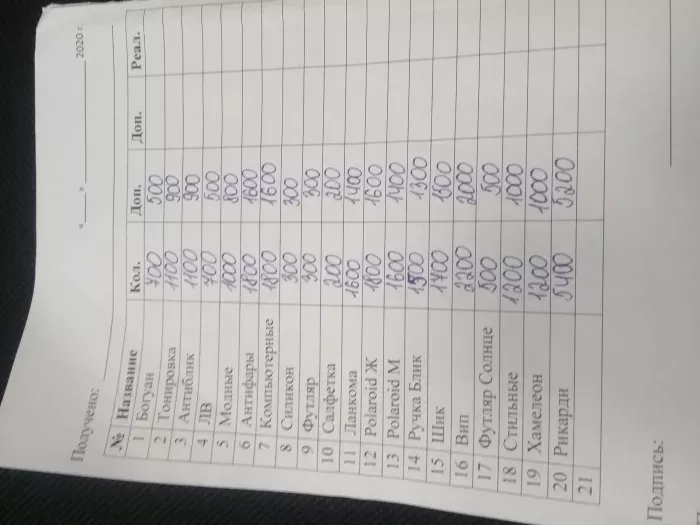 Получено: «___» ________ 2020 г.
№ Название Кол. Доп. Доп. Реал.
1 Богуан 700 500
2 Тонировка 1100 900
3 Антиблик 1100 900
4 ЛВ 700 500
5 Модные 1000 800
6 Антифары 1800 1600
7 Компьютерные 1800 1600
8 Силикон 300 300
9 Футляр 300 300
10 Салфетка 200 200
11 Ланкома 1600 1400
12 Polaroid Ж 1800 1600
13 Polaroid М 1600 1400
14 Ручка Блик 1500 1300
15 Шик 1700 1500
16 Вип 2200 2000
17 Футляр Солнце 500 500
18 Стильные 1200 1000
19 Хамелеон 1200 1000
20 Рикарди 5400 5200
21
Подпись: